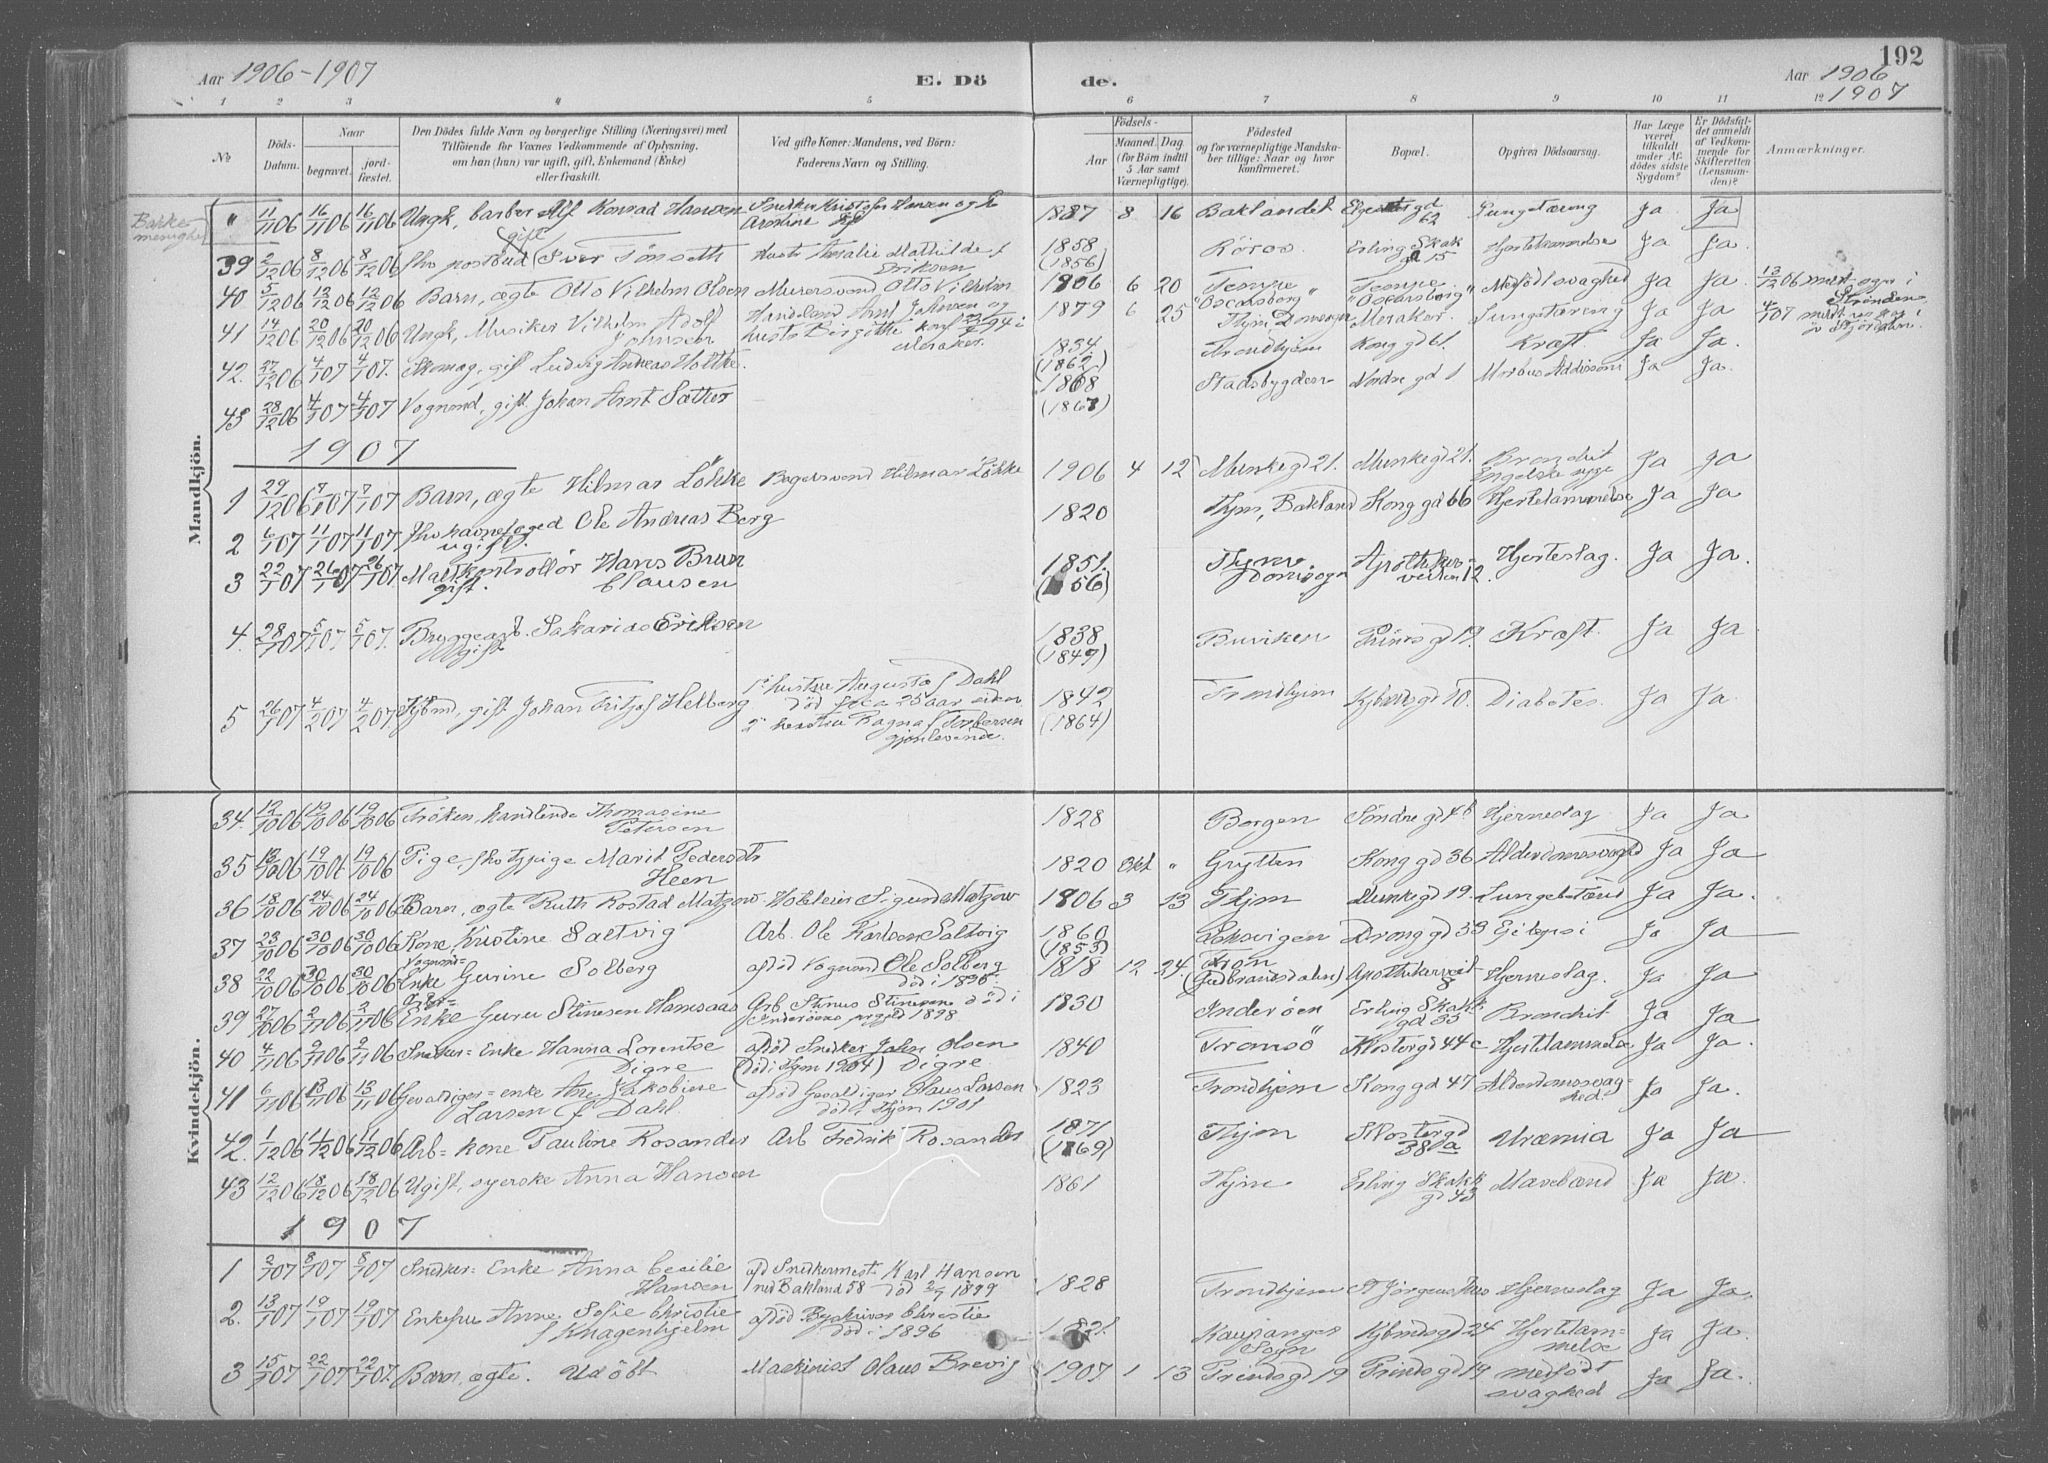 Aar 1906-1907 E. Dö de. Aar 1906 1907 192
1 2 3 4 5 6 7 8 9 10 11 12
No Döds-Datum. Naar begravet. jord-fæstet. Den Dödes fulde Navn og borgerlige Stilling (Næringsvei) med Tilföiende for Voxnes Vedkommende af Oplysning, om han (hun) var ugift, gift, Enkemand (Enke) eller fraskilt. Ved gifte Koner: Mandens, ved Börn: Faderens Navn og Stilling. Födsels- Aar Maaned. Dag. (for Börn indtil 5 Aar samt Værnepligtige). Födested og for værnepligtige Mandska-ber tillige: Naar og hvor konfirmeret. Bopæl. Opgiven Dödsaarsag. Har Læge været tilkaldt under Af-dödes sidste Sygdom? Er Dödsfal-det anmeldt af Vedkom-mende for Skifteretten (Lensman-den)? Anmærkninger.
Mandkjön.
Bakke menighed
" 11/11 06 16/11 06 16/11 06 Ungk, barber Alf Konrad Hansen Snedker Kristofer Hansen og h 1887 8 16 Baklandet 62 Lungetæring Ja Ja
39 2/12 06 8/12 06 8/12 06 fhv postbud gift Iver Tönseth Hustr Amalie Mathilde f Eriksen 1858 (1856) Röros Erling Skak gd 15 Hjertelammelse Ja Ja.
40 5/12 06 12/12 06 12/12 06 Barn, ægte Otto Vilhelm Olsen Murersvend Otto Vilhelm 1906 6 20 Tempe "Oscarsborg" Tempe "Oscarsborg" Medfödt svaghed Ja Ja. 13/12 06 i Strinden
41 14/12 06 20/12 06 20/12 06 Ungk, Musiker Vilhelm Adolf Johnsen 1879 6 25 Thjm Meraker. Lungetæring Ja Ja.
42. 27/12 06 4/1 07 4/1 07. Skomag, gift Ludvig Andreas Holtke. 1834 (1862) Trondhjem Kong gd 61. Kræft. Ja Ja.
43 28/12 06 4/1 07 4/1 07 Vognmd, gift Johan Arnt Sæther 1868 (1867) Stadsbygden Nordre gd 1 Morbus Addisoni Ja Ja.
1907
1 29/12 06 7/1 07 7/1 07 Barn, ægte Hilmar Lökke Bagersvend Hilmar Lökke 1906 4 12 Munkegd 21. Munkegd 21. Bronchit Engelske syge Ja Ja
2 6/1 07 11/1 07 11/1 07 fhv havnefoged Ole Andreas Berg ugift. 1820 Thjm, Bakland Kong gd 66 Hjertelammelse Ja Ja
3 22/1 07 26/1 07 26/1 07. Maltkontrollör Hans Brun Clausen gift. 1851. (1856) Thjm Domsogn Apothiker veiten 12. Hjerteslag. Ja Ja.
4. 28/1 07 5/2 07 5/2 07. Bryggearb. Sakarias Eriksen Ugift 1838 (1849) Buviken Prinsgd 19. Kræft. Ja Ja
5 26/1 07 4/2 07 4/2 07. Kjöbmd, gift Johan Fritjof Helberg 1° hustru Augusta f Dahl död for ca 25 aar siden 2° hustru Ragna f Torbersen gjenlevende. 1842 (1864) Trondhjem Kjöbmdsgd 10. Diabetes. Ja Ja.
Kvindekjön.
34. 12/10 06 19/10 06 19/10 06 Fröken, handlende Thomasine Petersen 1828 Borgen Söndregd 4b Hjerneslag Ja Ja
35 13/10 06 19/10 06 19/10 06 Pige, fhv typige Marit Pedersdtr Heen 1820 Okt " Grytten Kong gd 36 Alderdomssvaghed Ja Ja
36 18/10 06 24/10 06 24/10 06 Barn, ægte Ruth Rostad Matzow. Hoteleier Sigurd Matzow 1906 3 13 Thjm Munkegd 19. Lungebetænd Ja Ja.
37 23/10 06 30/10 06 30/10 06 Kone Kristine Saltvig Arb. Ole Karlsen Saltvig 1860 (1853) Leksvigen Dronggd 33 Epilepsi Ja Ja
38 22/10 06 30/10 06 30/10 06 Vognmd= Enke Gurine Solberg afdöd Vognmd Ole Solberg död i 1896. 1818 12 24. Fron (Gudbrandsdalen) Apothikerveit 8 Hjerneslag. Ja Ja
39 27/10 06 2/11 06 2/11 06 Arb= Enke Guru Stinesen Hamsaas Arb. Stinus Stinesen död i Inderöens prgjeld 1898 1830 Inderöen Erling Skakk gd 33 Bronchit Ja Ja
40 4/11 06 9/11 06 9/11 06 Snedker= Enke Hanna Lorentse Digre afdöd Snedker John Olsen (död i Thjm 1904) Digre 1840 Tromsö Klostergd 44c Hjertelammelse Ja Ja.
41 6/11 06 13/11 06 13/11 06 Gevaldiger= enke Ane Jakobine Larsen f Dahl. afdöd Gevaldiger Olaus Larsen död i Thjm 1901 1823 Trondhjem Kong gd 47 Alderdomssvag-hed. Ja Ja.
42. 1/12 06 11/12 06 11/12 06 Arb= kone Pauline Rosander Arb Fredrik Rosander 1871 (1869) Thjm Klostergd 38a Uræmia Ja Ja
43 12/12 06 18/12 06 18/12 06 Ugift, syerske Anna Hansen 1861 Thjm Erling Skakk gd 43 Mavebænd Ja Ja.
1907
1 2/1 07 8/1 07 8/1 07 Snedker= Enke Anna Cecilie Hansen afd Snedkermest. Karl Hansen ned Bakland 58 död 2/9 1899 1828 Trondhjem St Jörgens Hus Hjerneslag Ja Ja.
2. 13/1 07 19/1 07 19/1 07 Enkefru Anne Sofie Christie f Knagenhjelm afdöd Byskriver Christie död i 1896 1821. Kaupanger Sogn Kjöbmdsgd 24 Hjertelam=melse Ja Ja.
3 15/1 07 22/1 07 22/1 07. Barn, ægte. Udöbt Maskinist Olaus Brevig 1907 1 13 Prindsgd 19 Prindsgd 19 medfödt svaghed Ja Ja.